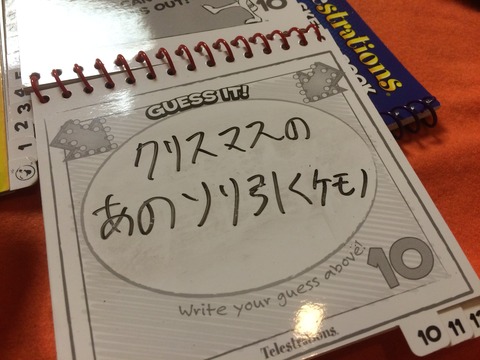 OUT!
10
GUESS IT!
クリスマスの
あのソリ引くケモノ
10
Write your guess above!
Telestrations
10 11 12
1 2 3 4 5
Telestrations